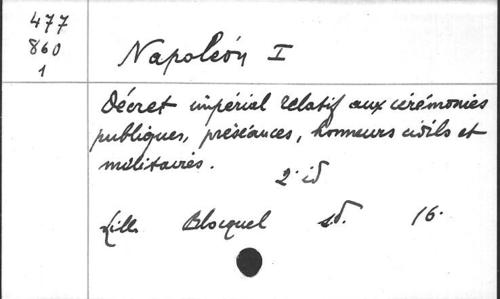 477
860
1
Napoleón I
Décret impérial relatif aux cérémonies
publiques, préséances, honneurs civils et
militaires.
2. id
Lille Blocquel s.d. 16.